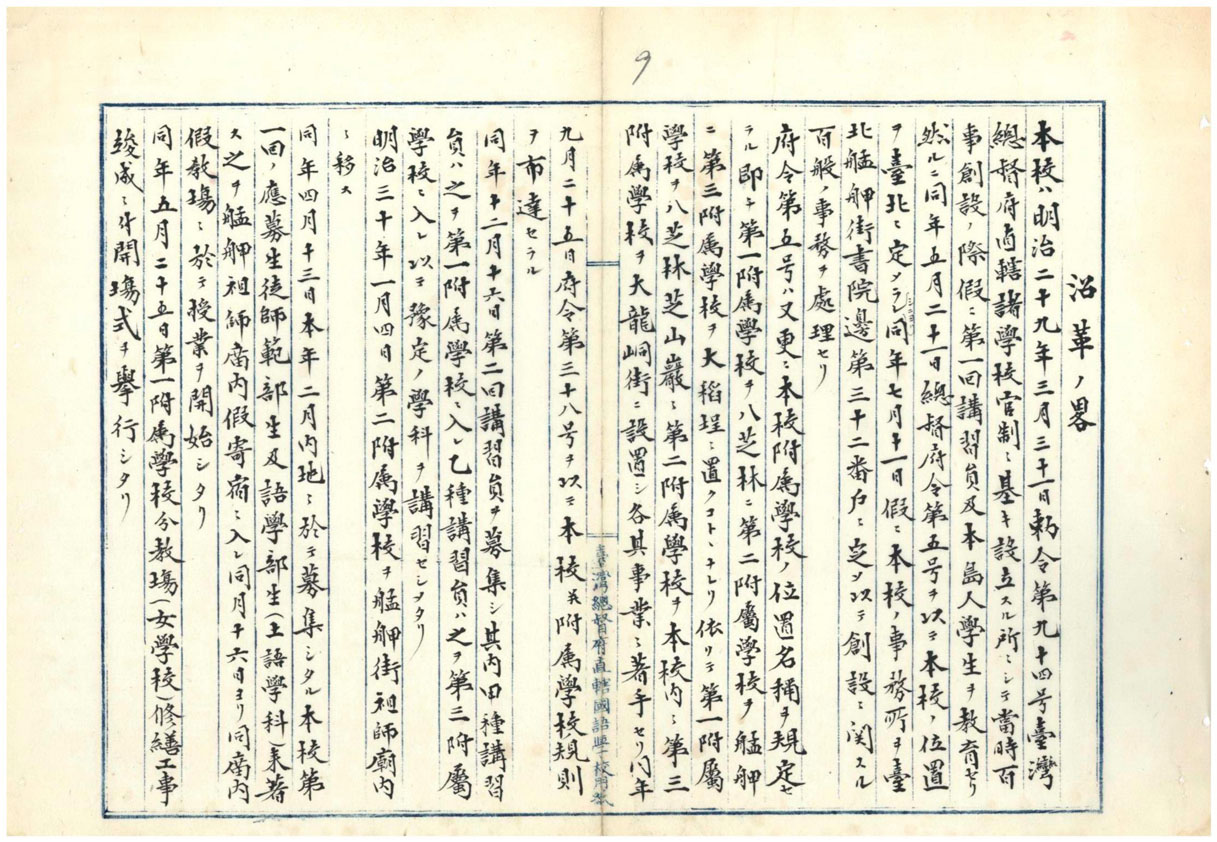 9
沿革ノ畧
本校ハ明治二十九年三月三十一日勅令第九十四号臺灣
總督府直轄諸學校官制ニ基キ設立スル所ニシテ當時百
事創設ノ際假ニ第一回講習員及本島人學生ヲ教育セリ
然ルニ同年五月二十一日總督府令第五号ヲ以テ本校ノ位置
ヲ臺北ニ定メラレ同年七月十一日假ニ本校ノ事務所ヲ臺
北艋舺街書院邊第三十二番戶ニ定メ以テ創設ニ関スル
百般ノ事務ヲ處理セリ
府令第五号ハ又更ニ本校附属學校ノ位置名稱ヲ規定セ
ラル即チ第一附属學校ヲ八芝林ニ第二附屬學校ヲ艋舺
ニ第三附属學校ヲ大稻埕ニ置クコトヽナレリ依リテ第一附属
學校ヲ八芝林芝山巖ニ第二附属學校ヲ本校内ニ第三
附属學校ヲ大龍峒街ニ設置シ各其事業ニ著手セリ同年
臺灣總督府直轄國語學校用紙
九月二十五日府令第三十八号ヲ以テ本校並附属學校規則
ヲ布達セラル
同年十二月十六日第二回講習員ヲ募集シ其内甲種講習
員ハ之ヲ第一附属學校ニ入レ乙種講習員ハ之ヲ第三附屬
學校ニ入レ以テ豫定ノ學科ヲ講習セシメタリ
明治三十年一月四日第二附属學校ヲ艋舺街祖師廟内
ニ移ス
同年四月十三日本年二月内地ニ於テ募集シタル本校第
一回ノ應募生徒師範部生及語學部生(土語學科)来著
ス之ヲ艋舺祖師廟内假寄宿ニ入レ同月十六日ヨリ同廟内
假教場ニ於テ授業ヲ開始シタリ
同年五月二十五日第一附属學校分教場(女學校)修繕工事
竣成ニ付開場式ヲ擧行シタリ